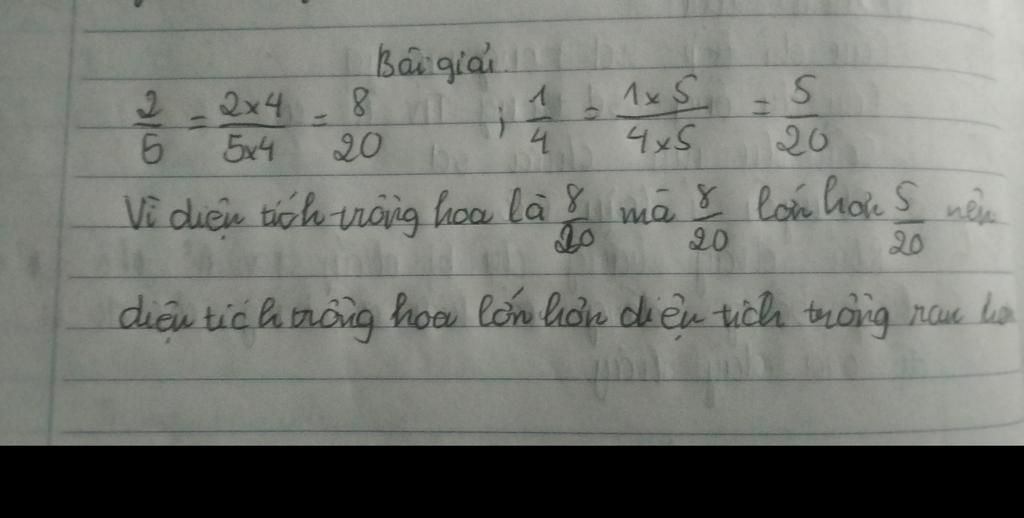 Bài giải
2/5 = 2x4/5x4 = 8/20 ; 1/4 = 1x5/4x5 = 5/20
Vì diện tích trồng hoa là 8/20 mà 8/20 lớn hơn 5/20 nên
diện tích trồng hoa lớn hơn diện tích trồng rau